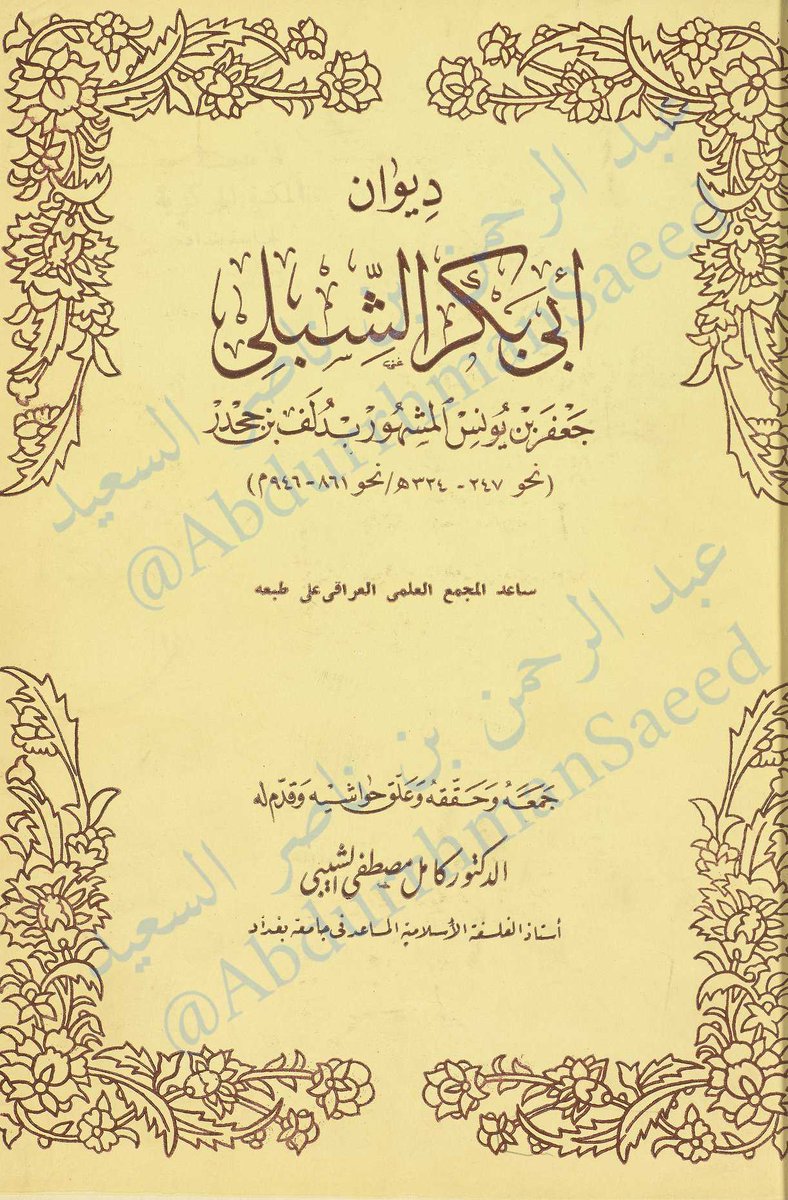 ديوان
أبي بكر الشِّبلي
جَعْفَر بن يُونس المشهُور بدُلَف بن جحدر
(نحو ٢٤٧ - ٣٢٤ هـ/ نحو ٨٦١ - ٩٤٦ م)
ساعد المجمع العلمى العراقى على طبعه
جَمَعَهُ وَحَقَّقَهُ وَعَلَّقَ حَواشيه وَقدّم له
الدكتور كامل مصطفى الشيبي
أستاذ الفلسفة الأسلامية المساعد في جامعة بغداد
عبد الرحمن بن ناصر السعيد
@AbdurrhmanSaeed
عبد الرحمن بن ناصر السعيد
@AbdurrhmanSaeed